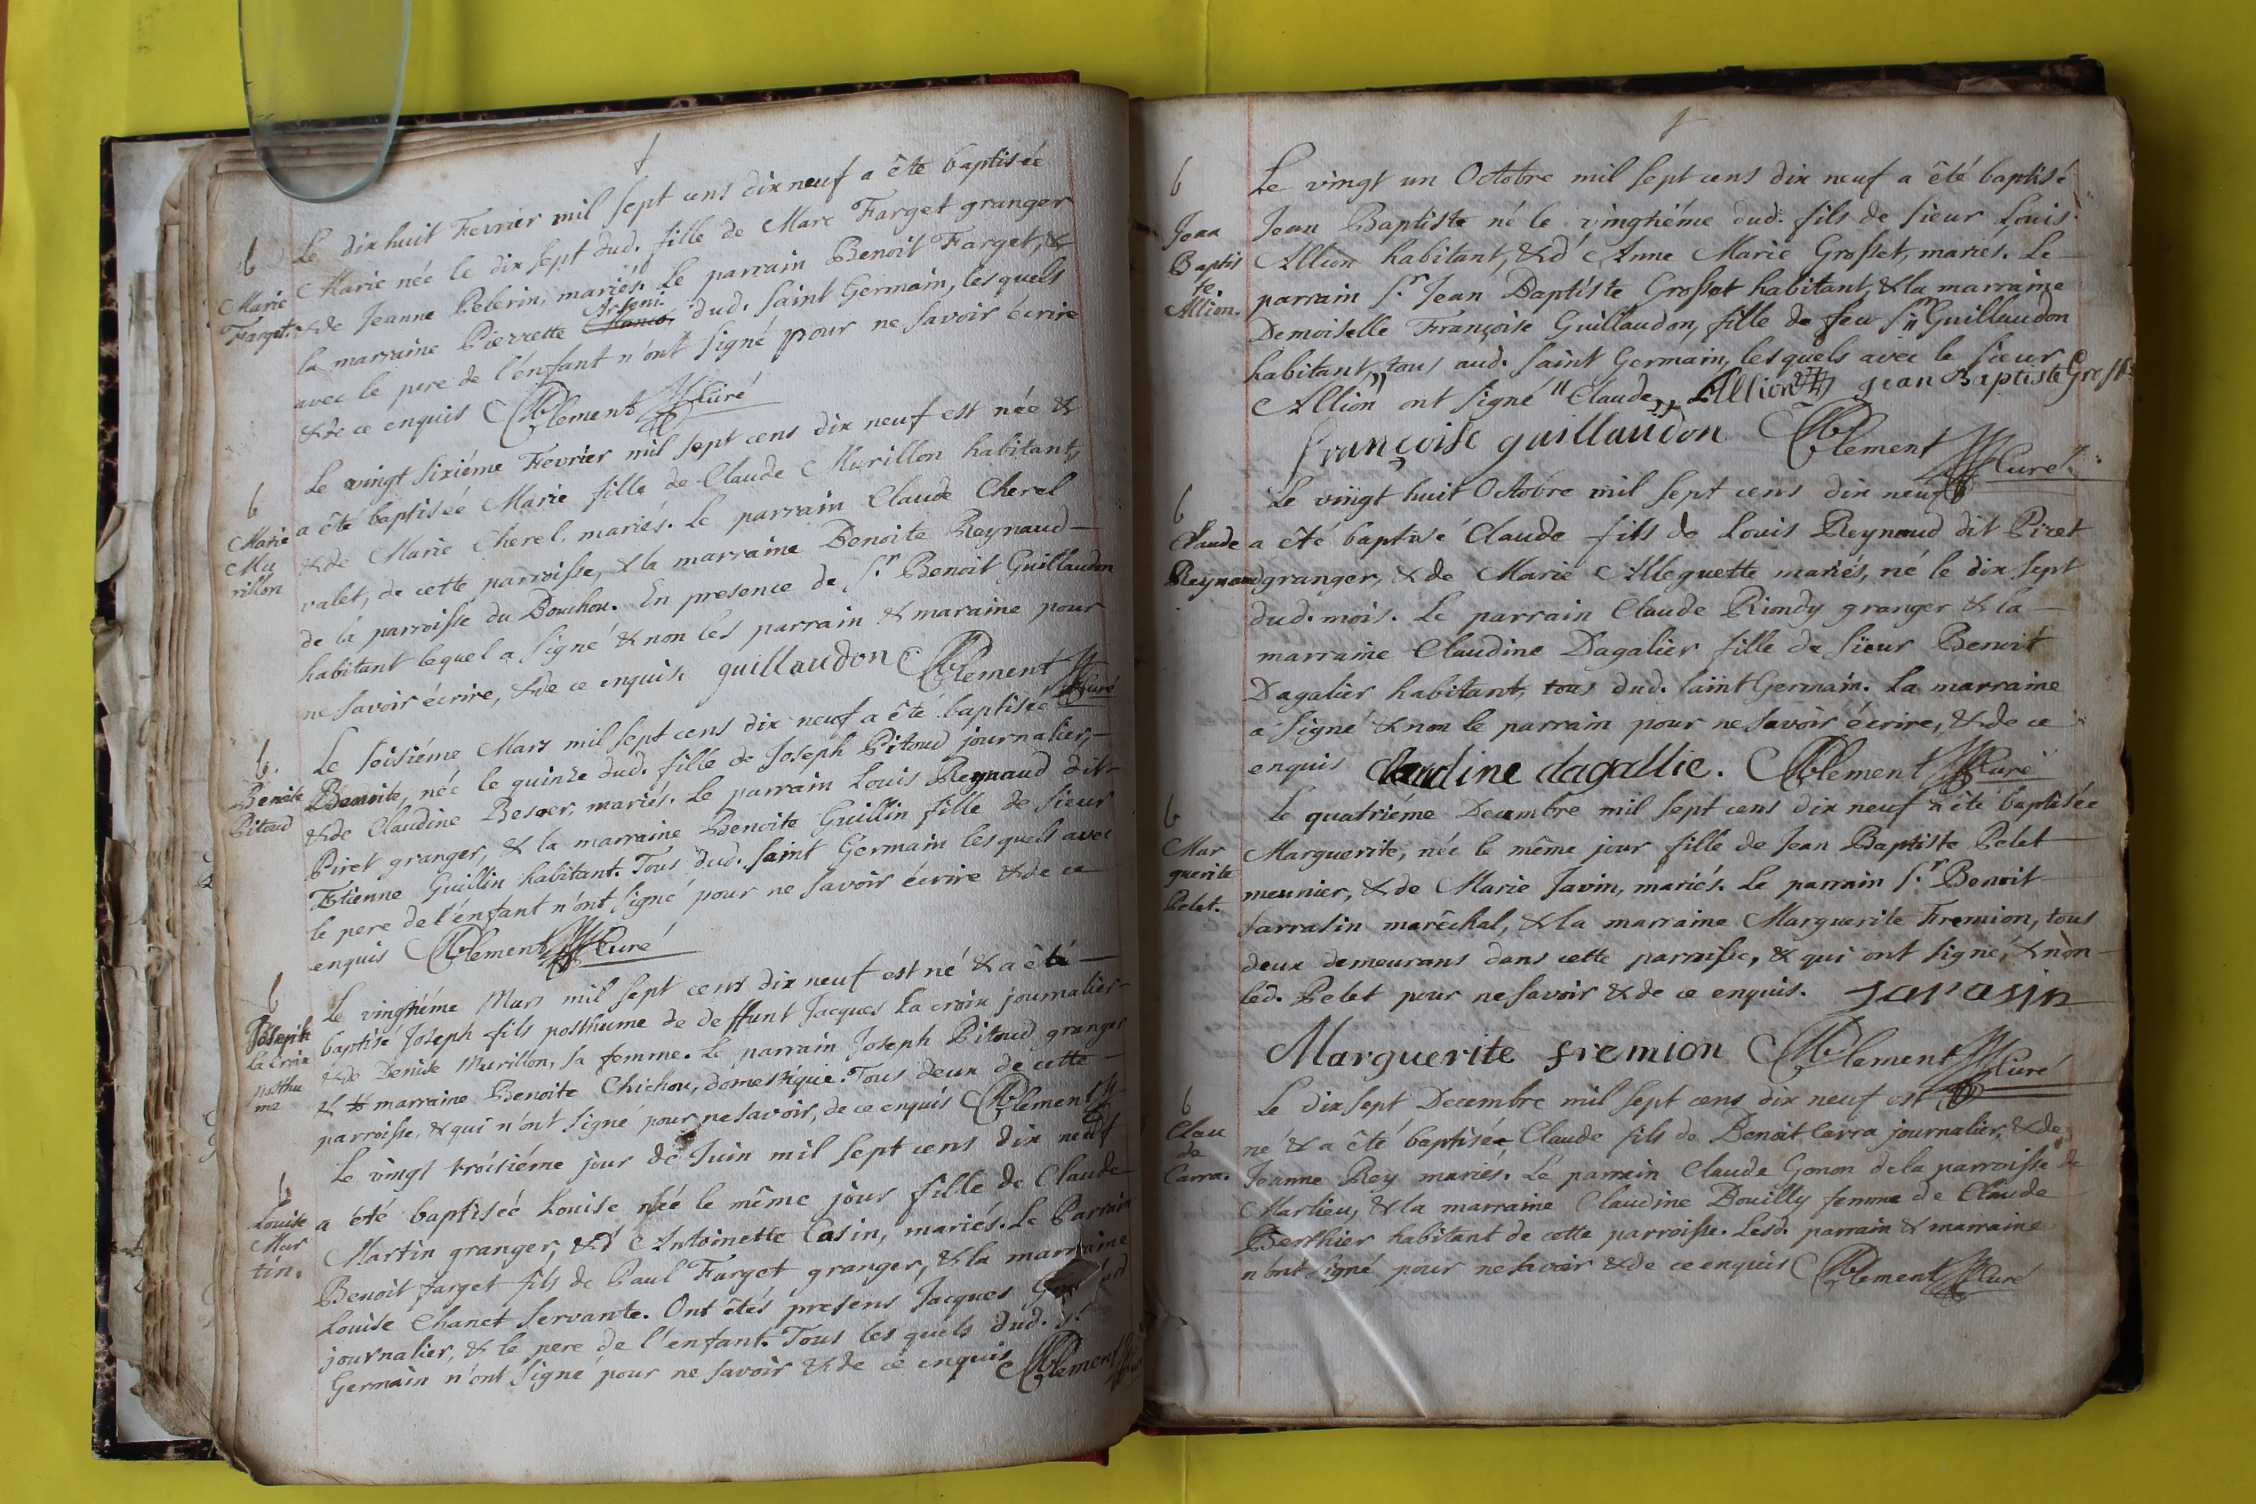 b
Marie
Farget.
Le dix huit Fevrier mil sept cens dix neuf a êtê baptisée
Marie née le dix sept dud. fille de Marc Farget granger
& de Jeanne Pelerin, mariés. Le parrain Benoit Farget, &
la marraine Pierrette dud. Saint Germain, lesquels
avec le pere de l'enfant n'ont signé pour ne savoir écrire
& de ce enquis Clement Curé
b
Marie
Mu
rillon
Le vingt sixiéme Fevrier mil sept cens dix neuf est née &
a êtê baptisée Marie fille de Claude Murillon habitant,
& de Marie Cherel mariés. Le parrain Claude Cherel
valet, de cette parroisse, & la marraine Benoite Reynaud
de la parroisse du Bouchou. En presence de S.r Benoit Guillaudon
habitant lequel a signé & non les parrain & maraine pour
ne savoir écrire, & de ce enquis guillaudon Clement Curé
b.
Benoite
Pitoud
Le seisiéme Mars mil sept cens dix neuf a êtê baptisée
Benoite, née le quinze dud. fille de Joseph Pitoud journalier,
& de Claudine mariés. Le parrain Louis Reynaud dit
Piret granger, & la marraine Benoite Guillin fille de sieur
Etienne Guillin habitant. Tous dud. Saint Germain lesquels avec
le pere de l'enfant n'ont signé pour ne savoir écrire & de ce
enquis Clement Curé
b
Joseph
La Croix
posthu
me
Le vingtiéme Mars mil sept cens dix neuf est né & a êté
baptisé Joseph fils posthume de deffunt Jacques La croix journalier
& de Denise Murillon, sa femme. Le parrain Joseph Pitoud granger
& la marraine Benoite Chichou, domestique. Tous deux de cette
parroisse, & qui n'ont signé pour ne savoir, de ce enquis Clement
b
Louise
Mar
tin.
Le vingt troisiéme jour de Juin mil sept cens dix neuf
a êtê baptisée Louise née le même jour fille de Claude
Martin granger, & d'Antoinette Casin, mariés. Le Parrain
Benoit farget fils de Paul Farget granger, & la marraine
Louise Chanet servante. Ont êtés presens Jacques
journalier, & le pere de l'enfant. Tous lesquels dud. S.t
Germain n'ont signé pour ne savoir & de ce enquis Clement
b
Jean
Baptis
te
Allion.
Le vingt un Octobre mil sept cens dix neuf a êtê baptisé
Jean Baptiste né le vingtiéme dud. fils de sieur Louis
Allion habitant, & d'Anne Marie Grosset, mariés. Le
parrain S.r Jean Baptiste Grosset habitant, & la marraine
Demoiselle Françoise Guillaudon, fille de feu S.r Guillaudon
habitant, tous aud. Saint Germain, lesquels avec le sieur
Allion ont signé Claude Allion jean Baptiste Grosst
françoise guillaudon Clement Curé
b
Claude
Reynaud
Le vingt huit Octobre mil sept cens dix neuf
a êtê baptisé Claude fils de Louis Reynaud dit Piret
granger, & de Marie Alleguette mariés, né le dix sept
dud. mois. Le parrain Claude Riondy granger & la
marraine Claudine Dagalier fille de Sieur Benoit
Dagalier habitant, tous dud. Saint Germain. La marraine
a signé & non le parrain pour ne savoir écrire, & de ce
enquis claudine dagallie. Clement Curé
b
Mar
guerite
Pelet.
Le quatriéme Decembre mil sept cens dix neuf a êtê baptisée
Marguerite, née le même jour fille de Jean Baptiste Pelet
meunier, & de Marie Javin, mariés. Le parrain S.r Benoit
Sarrasin marêchal, & la marraine Marguerite Fremion, tous
deux demeurans dans cette parroisse, & qui ont signé, & non
led. Pelet pour ne savoir & de ce enquis. sarasin
Marguerite fremion Clement Curé
b
Clau
de
Carra.
Le dix sept Decembre mil sept cens dix neuf est
né & a êtê baptisée Claude fils de Benoit Carra journalier, & de
Jeanne Rey mariés. Le parrain Claude Gonon de la parroisse de
Marlieu, & la marraine Claudine Bouilly femme de Claude
Berthier habitant de cette parroisse. Lesd. parrain & marraine
n'ont signé pour ne savoir & de ce enquis Clement Curé